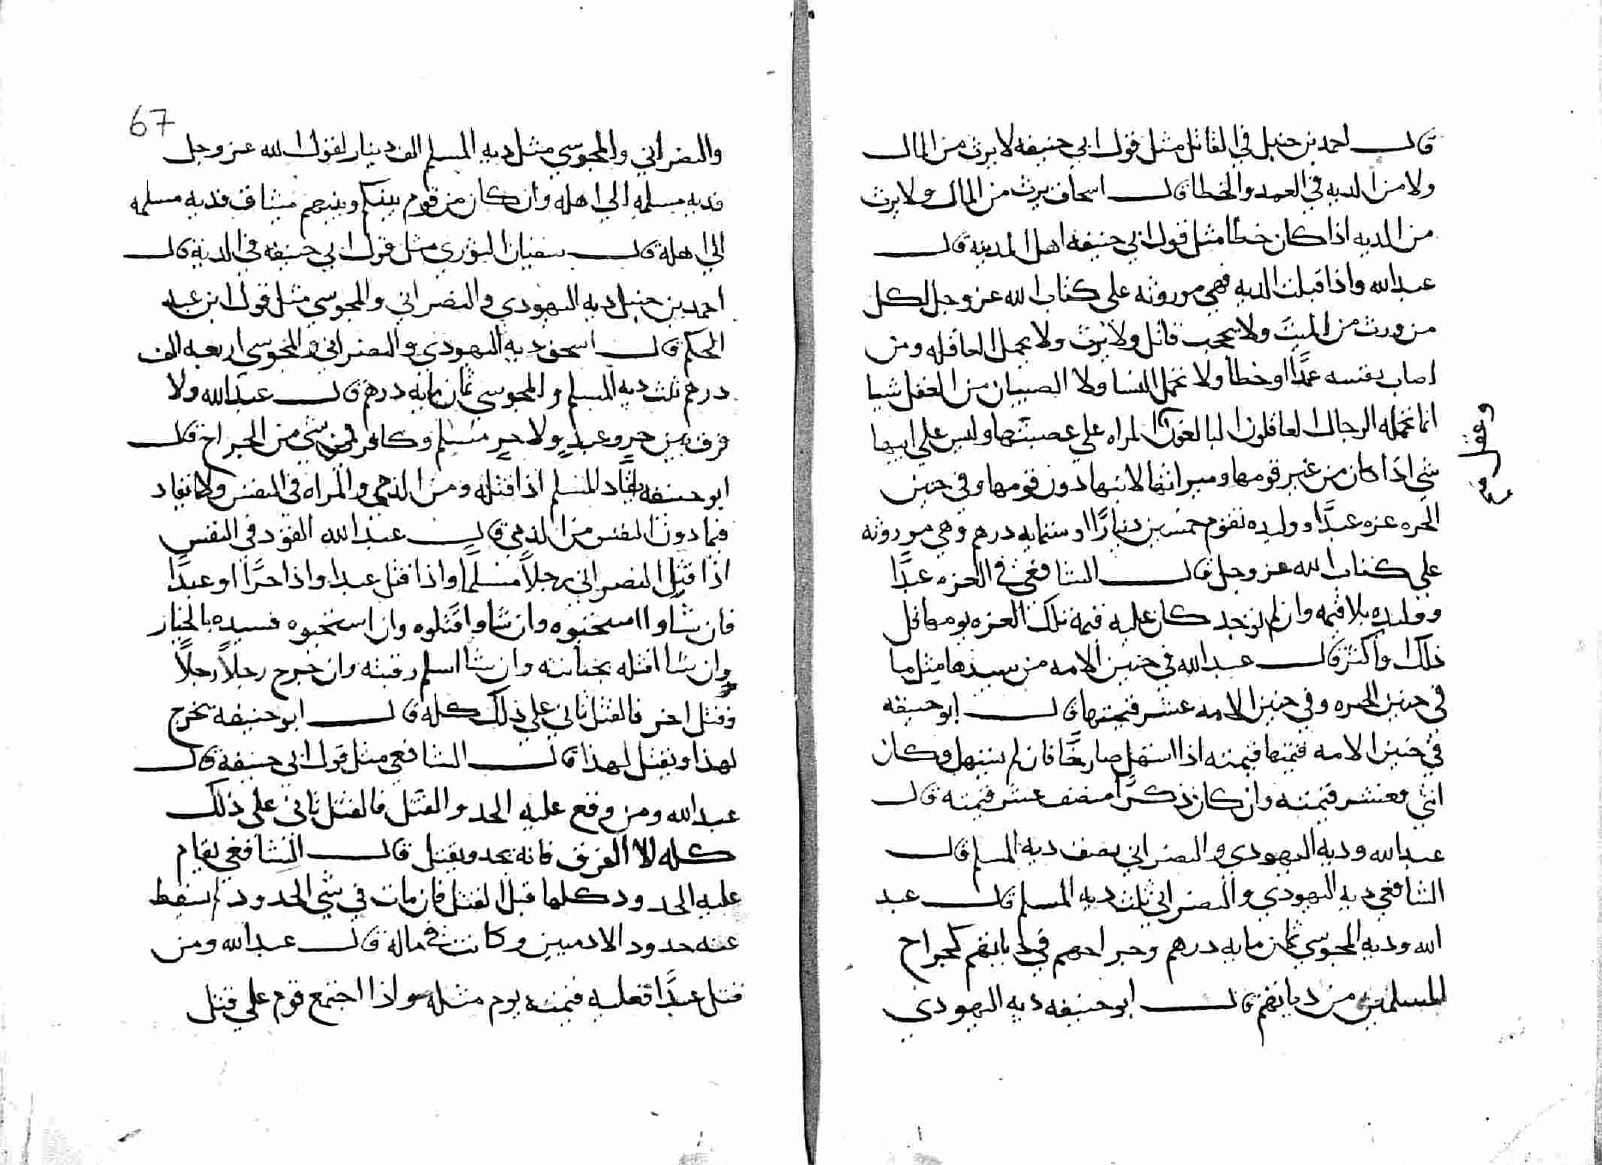 قال احمد بن حنبل في القاتل مثل قول ابي حنيفه لا يرث من المال
ولا من الديه في العمد والخطا قال اسحاق يرث من المال ولا يرث
من الديه اذا كان خطا مثل قول ابي حنيفه اهل المدينه قال
عبد الله واذا قبلت الديه فهي موروثه على كتاب الله عز وجل لكل
من ورث من الميت ولا يحجب قاتل ولا يرث ولا تحمل العاقله ومن
اصاب نفسه عمدًا او خطا ولا تحمل النسا ولا الصبيان من العقل شيا
انما تحمله الرجال العاقلون البالغون المراه على عصبتها وليس على ابيها
شي اذا كان من غير قومها وميراثها لابنها دون قومها وفي جنين
وعقل
الحره غره عبدًا او وليده تقوم خمسين دينارًا او ستمايه درهم وهي موروثه
على كتاب الله عز وجل قال الشافعي في الغره عبدًا
ووليده بلا قيمه وان لم توجد كان عليه قيمه تلك الغره يومها قل
ذلك او اكثر قال عبد الله في جنين الامه من سيدها مثل ما
في جنين الحره وفي جنين الامه عشر قيمتها قال ابو حنيفه
في جنين الامه قيمتها قيمته اذا استهل صارخًا فان لم يستهل وكان
انثى فعشر قيمته وان كان ذكرًا فنصف عشر قيمته قال
عبد الله وديه اليهودي والنصراني نصف ديه المسلم قال
الشافعي ديه اليهودي والنصراني ثلث ديه المسلم قال عبد
الله وديه المجوسي ثمان مايه درهم وجراحهم في دياتهم كجراح
المسلمين من دياتهم قال ابو حنيفه ديه اليهودي
67
والنصراني والمجوسي مثل ديه المسلم الف دينار لقول الله عز وجل
فديه مسلمه الى اهله وان كان من قوم بينكم وبينهم ميثاق فديه مسلمه
الى اهله قال سفيان الثوري مثل قول ابي حنيفه في الديه قال
احمد بن حنبل ديه اليهودي والنصراني والمجوسي مثل قول ابن عبد
الحكم قال اسحق ديه اليهودي والنصراني والمجوسي اربعه الف
درهم ثلث ديه المسلم والمجوسي ثمان مايه درهم قال عبد الله ولا
فرق بين حر وعبد ولا حر مسلم وكافر في شي من الجراح قال
ابو حنيفه يقاد للمسلم اذا قتله ومن الذمي والمراه في النفس ولا يقاد
فيما دون النفس من الذمي قال عبد الله القود في النفس
اذا قتل النصراني رجلًا مسلمًا واذا قتل عبدا واذا حرًا او عبدًا
فان شاوا استحيوه وان شاوا قتلوه وان استحيوه فسيده بالخيار
وان شا افتكه بجنايته وان شا اسلم رقبته وان جرح رجلًا رجلًا
وقتل اخر فالقتل ياتي على ذلك كله قال ابو حنيفه يجرح
لهذا ويقتل لهذا قال الشافعي مثل قول ابي حنيفه قال
عبد الله ومن وقع عليه الحد والقتل فالقتل ياتي على ذلك
كله الا الفريه فانه يحد ويقتل قال الشافعي يقام
عليه الحدود كلها قبل القتل فان مات في شي الحدود لم يسقط
عنه حدود الادميين وكانت في ماله قال عبد الله ومن
قتل عبدًا فعليه قيمته يوم قتله واذا اجتمع قوم على قتل